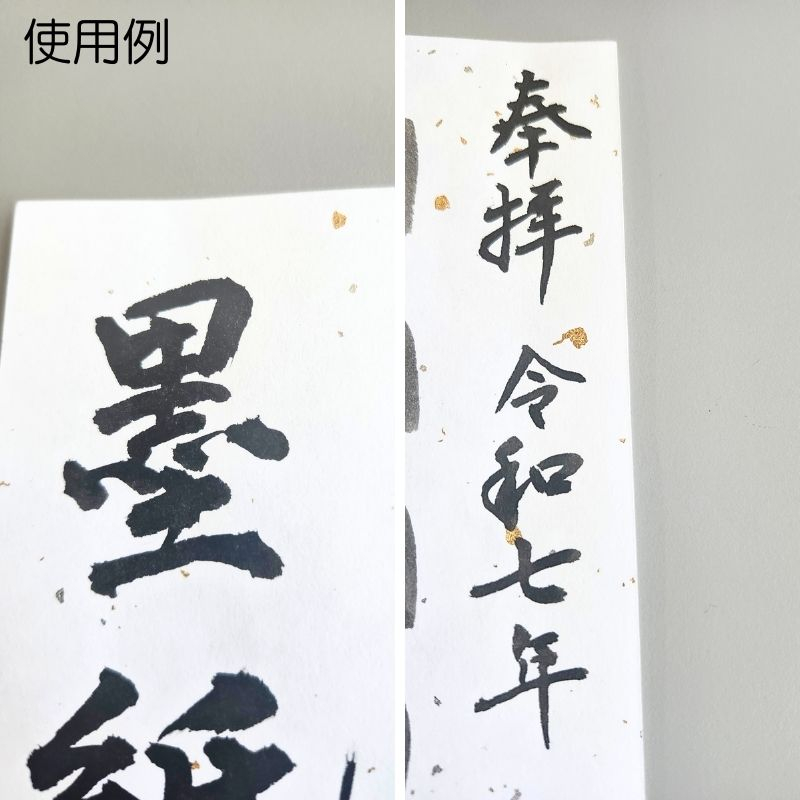 使用例
墨
紙
奉拝
令和七年